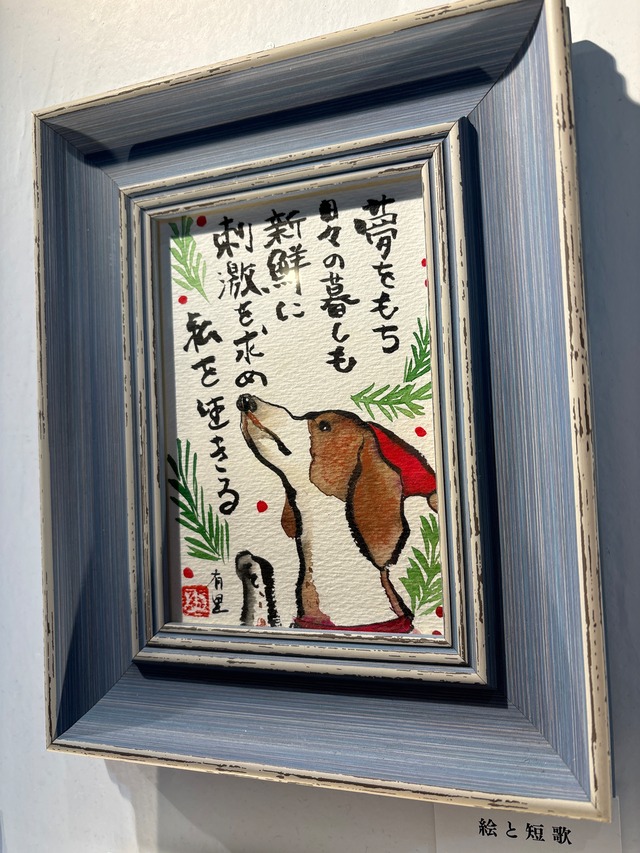 夢をもち
日々の暮しも
新鮮に
刺激を求め
私を生きる
有里
絵と短歌